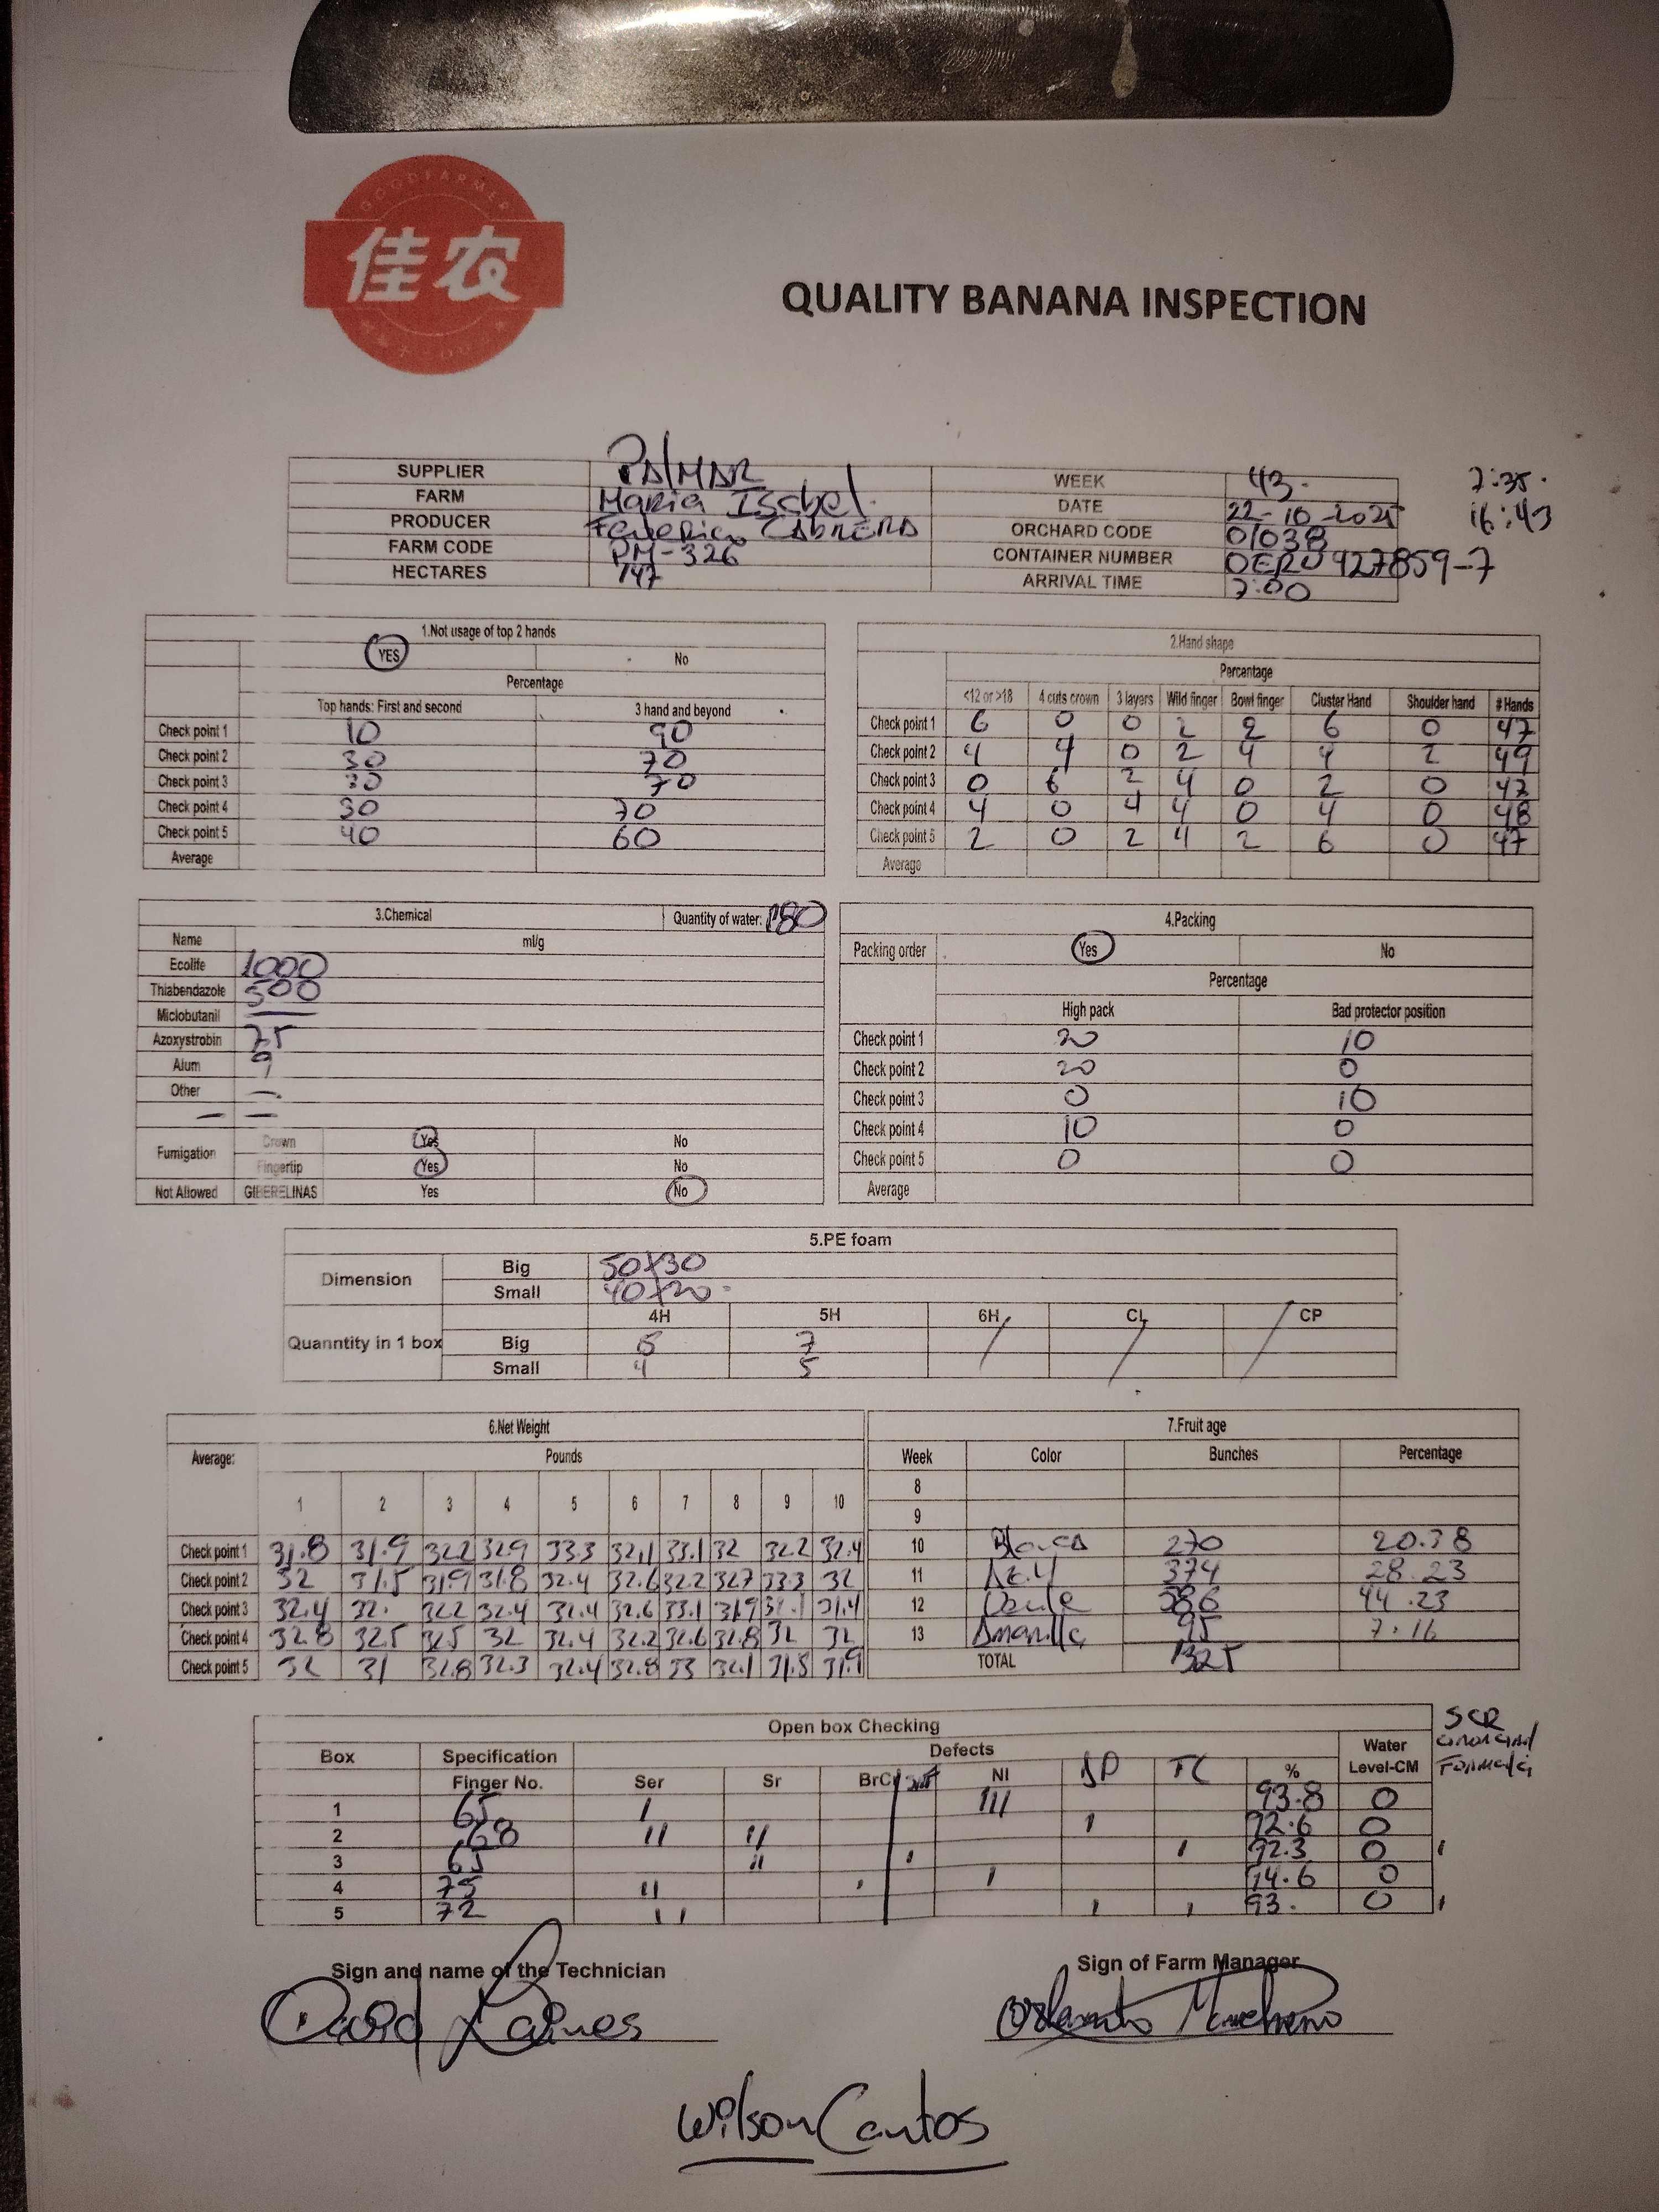 GOODFARMER
佳农
QUALITY BANANA INSPECTION
SUPPLIER PALMAR WEEK 43. 7:35.
FARM Maria Isabel. DATE 22-10-2025 16:43
PRODUCER Federico CABRERA ORCHARD CODE 01038
FARM CODE PM-326 CONTAINER NUMBER OERU 927859-7
HECTARES 147 ARRIVAL TIME 7:00
1.Not usage of top 2 hands
YES No
Percentage
Top hands: First and second 3 hand and beyond
Check point 1 10 90
Check point 2 30 70
Check point 3 30 70
Check point 4 30 70
Check point 5 40 60
Average
2.Hand shape
Percentage
<12 or >18 4 cuts crown 3 layers Wild finger Bowl finger Cluster Hand Shoulder hand # Hands
Check point 1 6 0 0 2 2 6 0 47
Check point 2 4 4 0 2 4 4 2 49
Check point 3 0 6 2 4 0 2 0 47
Check point 4 4 0 4 4 0 4 0 48
Check point 5 2 0 2 4 2 6 0 47
Average
3.Chemical Quantity of water: 180
Name ml/g
Ecolife 1000
Thiabendazole 500
Miclobutanil —
Azoxystrobin 75
Alum 9
Other —
— —
Fumigation Crown Yes No
Fingertip Yes No
Not Allowed GIBERELINAS Yes No
4.Packing
Packing order Yes No
Percentage
High pack Bad protector position
Check point 1 20 10
Check point 2 20 0
Check point 3 0 10
Check point 4 10 0
Check point 5 0 0
Average
5.PE foam
Dimension Big 50X30
Small 40X20
4H 5H 6H CL CP
Quanntity in 1 box Big 7
Small 4 5
6.Net Weight
Average: Pounds
1 2 3 4 5 6 7 8 9 10
Check point 1 31.8 31.9 32.2 32.9 33.3 32.1 33.1 32 32.2 32.4
Check point 2 32 31.5 31.9 31.8 32.4 32.6 32.2 32.7 33.3 32
Check point 3 32.4 32. 32.2 32.4 32.4 32.6 33.1 31.9 31.4
Check point 4 32.8 32.5 32.5 32 32.4 32.2 32.6 32.8 32 32
Check point 5 32 31 32.8 32.3 32.4 32.8 33 32.1 31.8 31.9
7.Fruit age
Week Color Bunches Percentage
8
9
10 Blanca 270 20.38
11 Azul 374 28.23
12 586 44.23
13 Amarilla 95 7.16
TOTAL 1325
Open box Checking
Box Specification Defects Water
Finger No. Ser Sr BrCr NI SP TC % Level-CM SCR
1 65 / /// 93.8 0
2 68 // // / 92.6 0
3 65 // / / 92.3 0 /
4 75 // / / 94.6 0
5 72 // / / 93. 0 /
Sign and name of the Technician Sign of Farm Manager
David Laines Orlando
Wilson Cantos